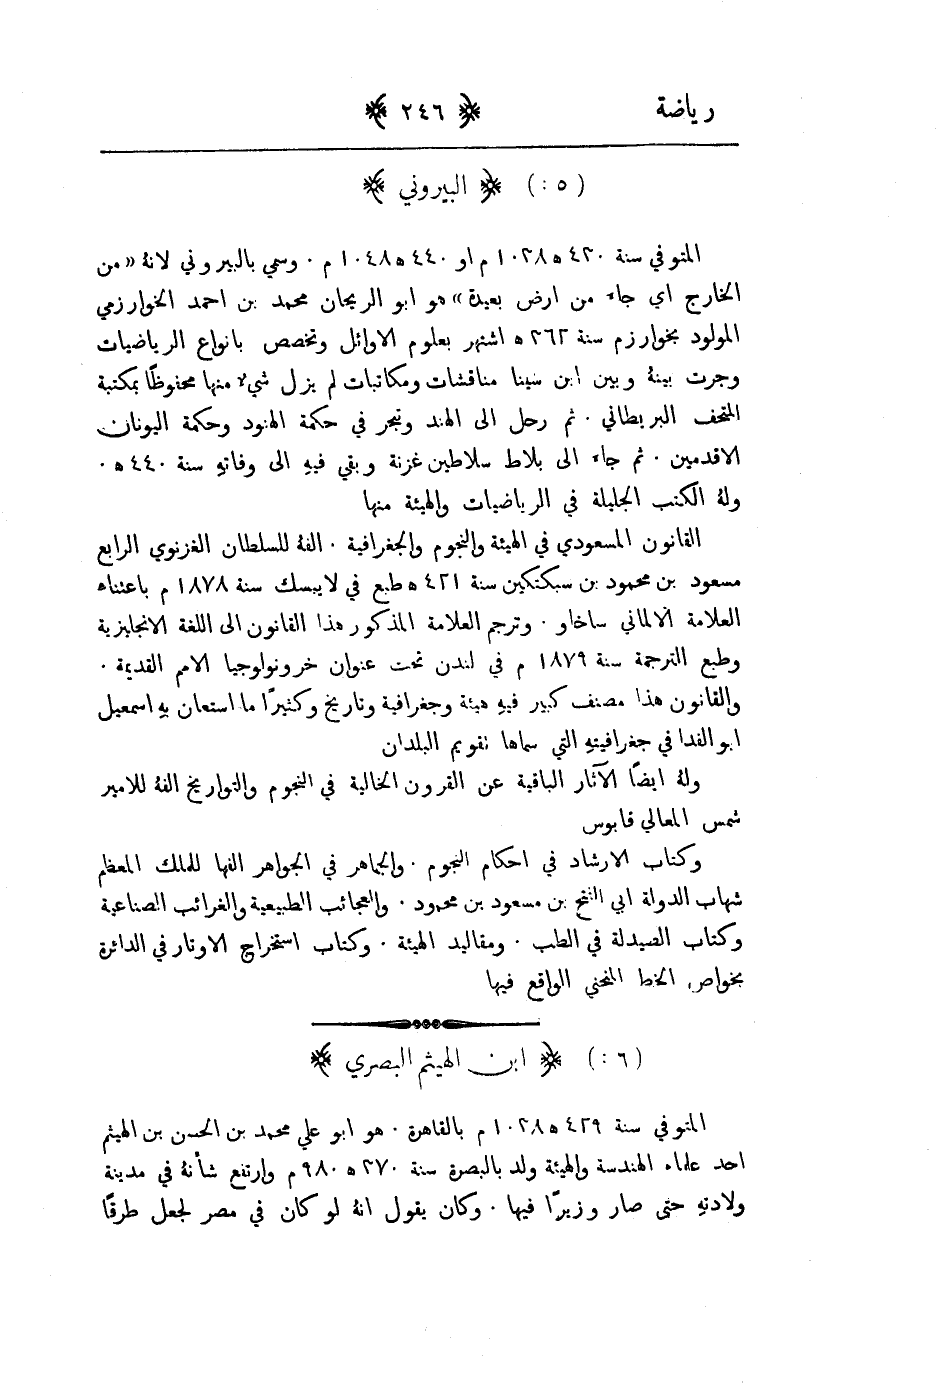 رياضة ﴿ ٢٤٦ ﴾
(٥:) ﴿ البيروني ﴾
المتوفي سنة ٤٣٠ ه ١٠٣٨ م او ٤٤٠ ه ١٠٤٨ م · وسمي بالبيروني لانهُ «من
الخارج اي جاء من ارض بعيدة» هو ابو الريحان محمد بن احمد الخوارزمي
المولود بخوارزم سنة ٣٦٢ ه اشتهر بعلوم الاوائل وتخصص بانواع الرياضيات
وجرت بينهُ وبين ابن سينا مناقشات ومكاتبات لم يزل شيءٌ منها محفوظًا بمكتبة
المتحف البريطاني · ثم رحل الى الهند وتبحر في حكمة الهنود وحكمة اليونان
الاقدمين · ثم جاء الى بلاط سلاطين غزنة وبقي فيهِ الى وفاتهِ سنة ٤٤٠ ه ·
ولهُ الكتب الجليلة في الرياضيات والهيئة منها
القانون المسعودي في الهيئة والنجوم والجغرافية · الفهُ للسلطان الغزنوي الرابع
مسعود بن محمود بن سبكتكين سنة ٤٢١ ه طبع في لايبسك سنة ١٨٧٨ م باعتناء
العلامة الالماني ساخاو · وترجم العلامة المذكور هذا القانون الى اللغة الانجليزية
وطبع الترجمة سنة ١٨٧٩ م في لندن تحت عنوان خرونولوجيا الامم القديمة ·
والقانون هذا مصنف كبير فيهِ هيئة وجغرافية وتاريخ وكثيرًا ما استعان بهِ اسمعيل
ابو الفدا في جغرافيتهِ التي سماها تقويم البلدان
ولهُ ايضًا الآثار الباقية عن القرون الخالية في النجوم والتواريخ الفهُ للامير
شمس المعالي قابوس
وكتاب الارشاد في احكام النجوم · والجماهر في الجواهر الفها للملك المعظم
شهاب الدولة ابي الفتح بن مسعود بن محمود · والعجائب الطبيعية والغرائب الصناعية
وكتاب الصيدلة في الطب · ومقاليد الهيئة · وكتاب استخراج الاوتار في الدائرة
بخواص الخط المنحني الواقع فيها
(٦:) ﴿ ابن الهيثم البصري ﴾
المتوفي سنة ٤٢٩ ه ١٠٣٨ م بالقاهرة · هو ابو علي محمد بن الحسن بن الهيثم
احد علماء الهندسة والهيئة ولد بالبصرة سنة ٣٧٠ ه ٩٨٠ م وارتفع شأنهُ في مدينة
ولادتهِ حتى صار وزيرًا فيها · وكان يقول انهُ لو كان في مصر لجعل طرقًا